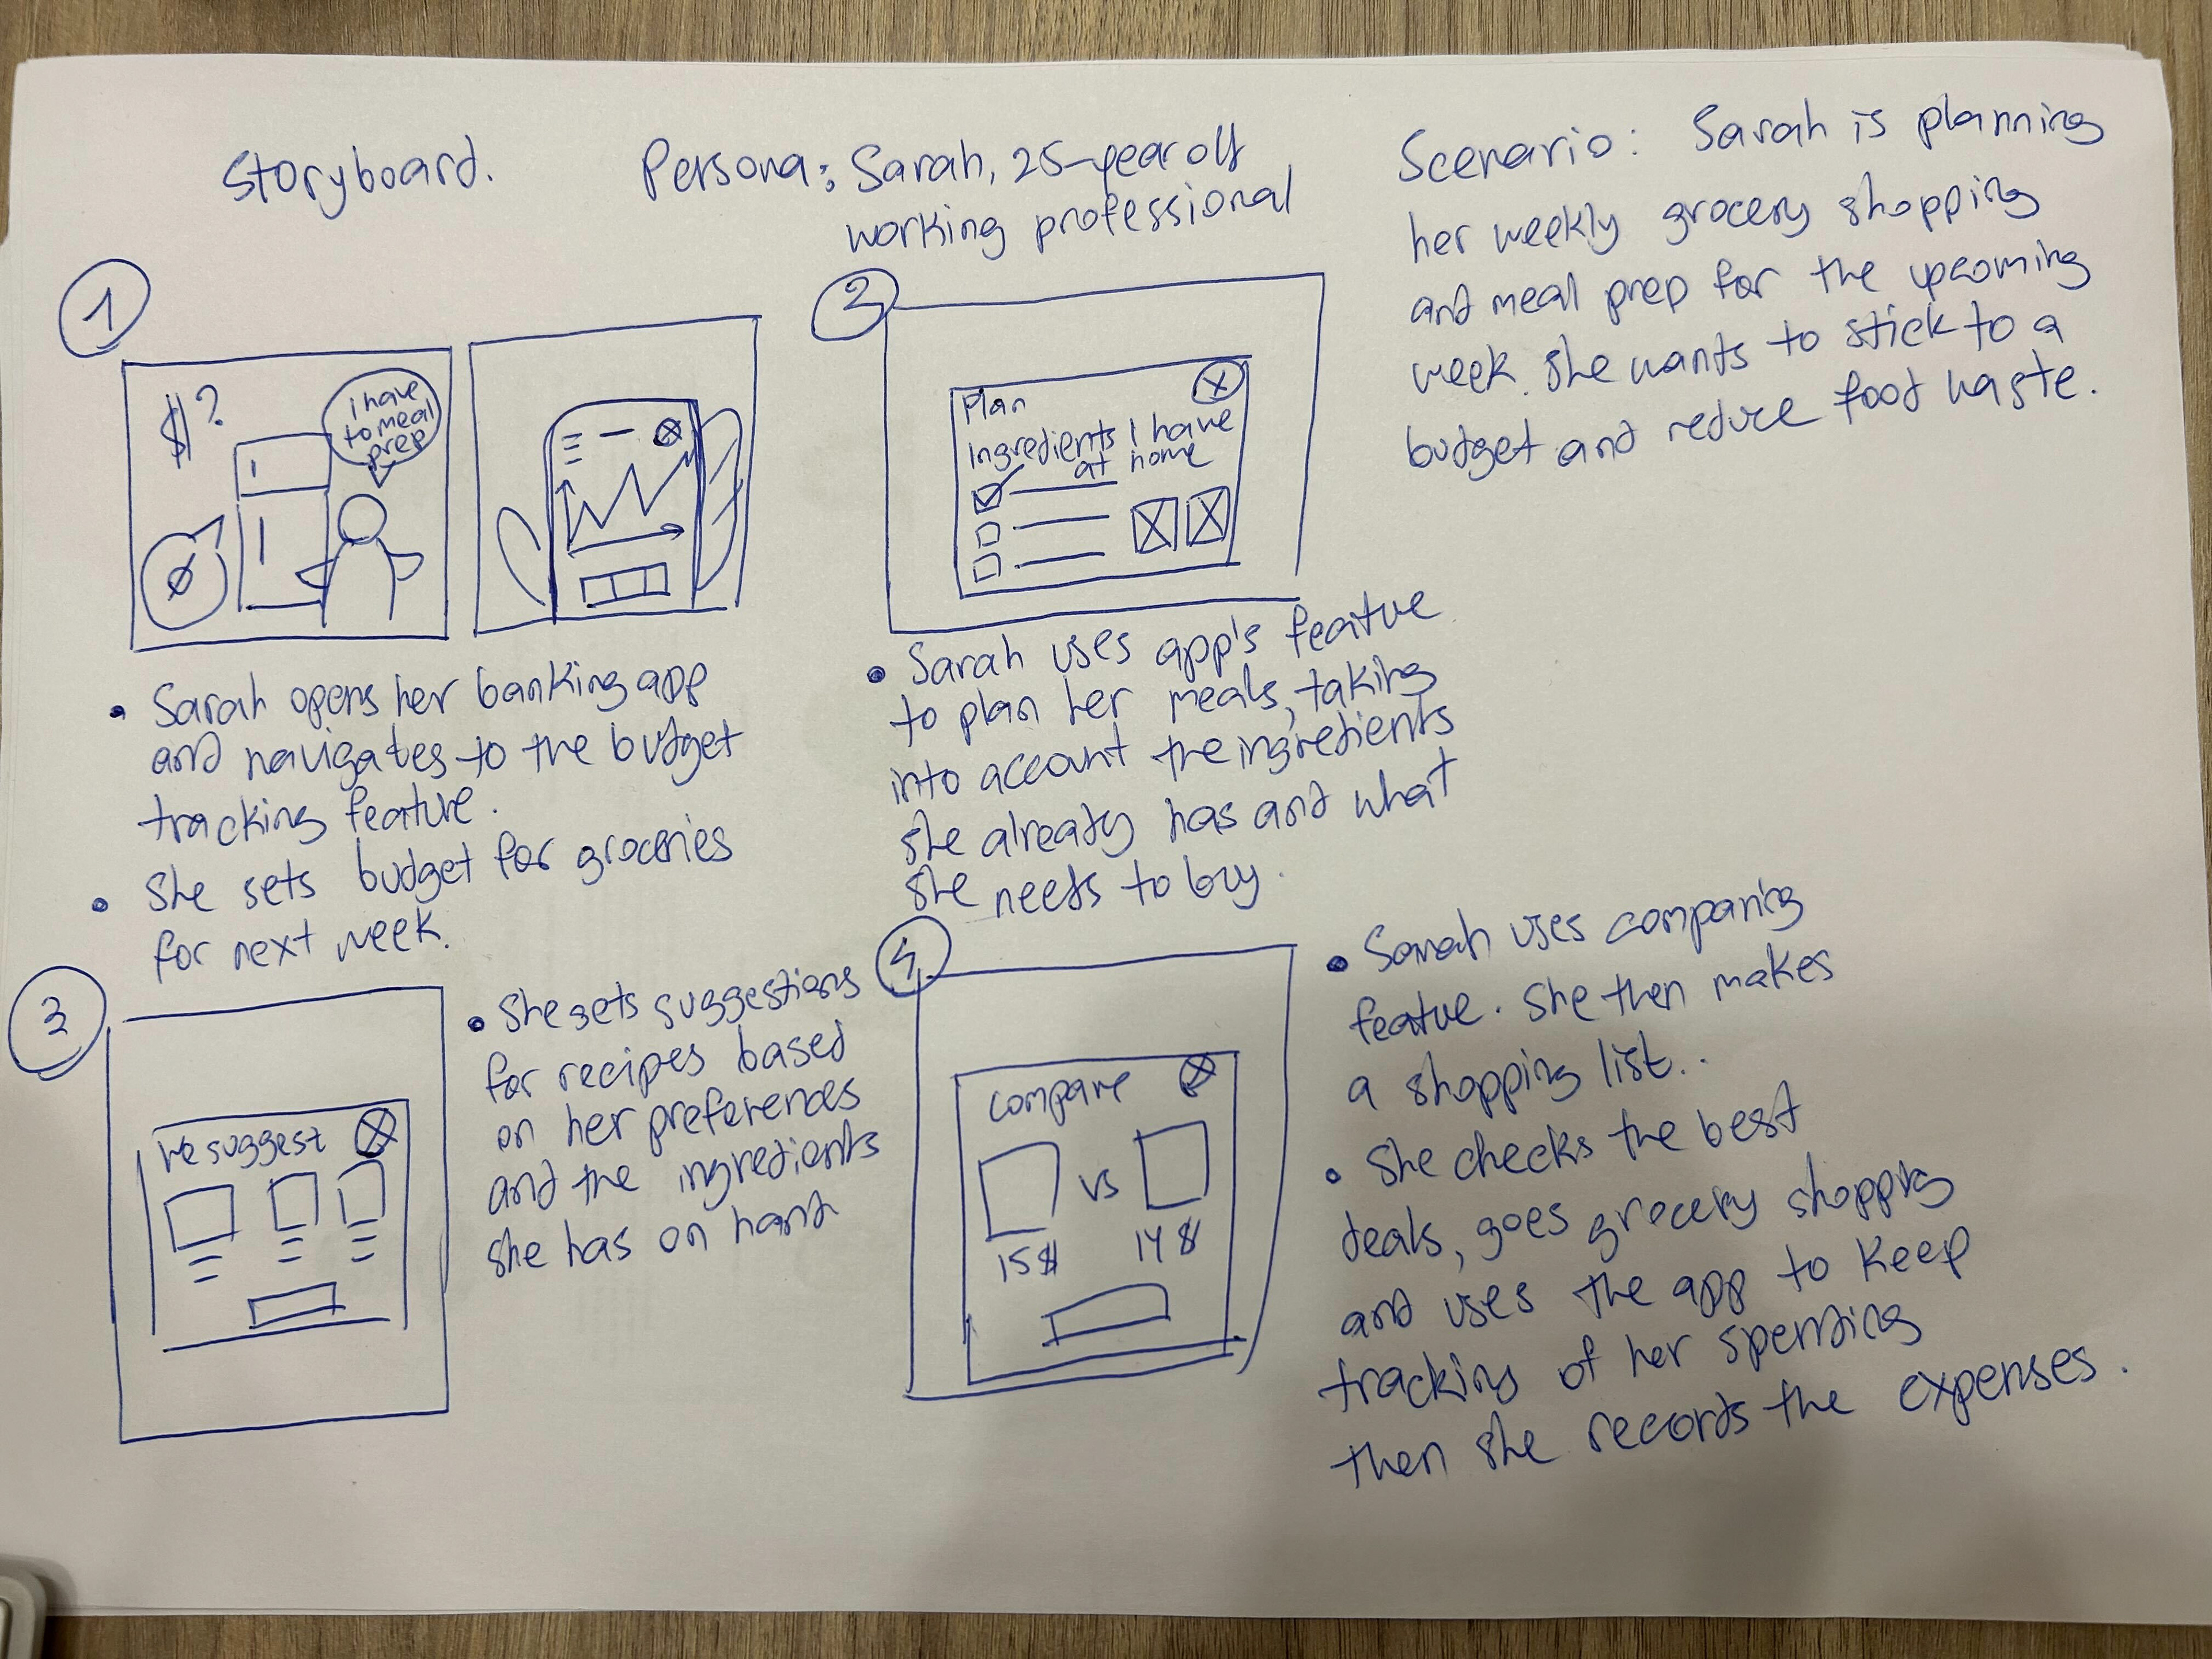 Storyboard.
Persona: Sarah, 25-year old
working professional
Scenario: Sarah is planning
her weekly grocery shopping
and meal prep for the upcoming
week. She wants to stick to a
budget and reduce food waste.
1
$?
I have
to meal
prep
• Sarah opens her banking app
and navigates to the budget
tracking feature.
• She sets budget for groceries
for next week.
2
Plan
Ingredients I have
at home
• Sarah uses app's feature
to plan her meals, taking
into account the ingredients
she already has and what
she needs to buy.
3
We suggest
• She gets suggestions
for recipes based
on her preferences
and the ingredients
she has on hand
4
compare
vs
15$ 14$
• Sarah uses comparing
feature. She then makes
a shopping list..
• She checks the best
deals, goes grocery shopping
and uses the app to keep
tracking of her spending
then she records the expenses.